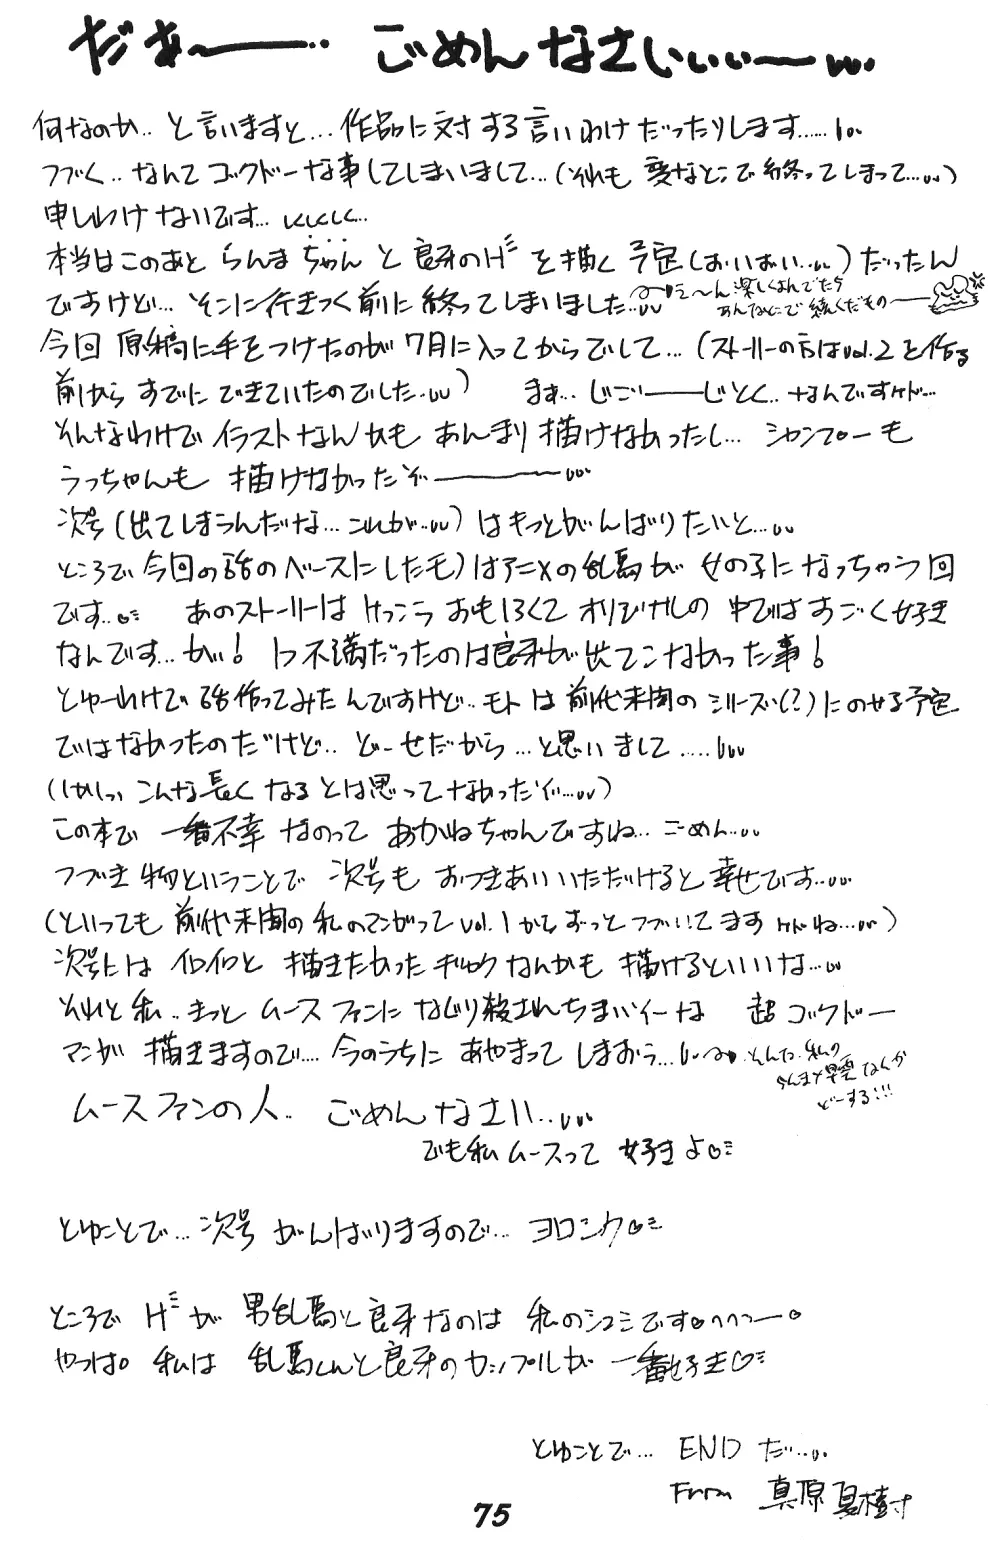 だぁー‥ ごめんなさいぃぃー…
何なのか‥と言いますと…作品に対する言いわけだったりします……
つづく‥なんてゴックドーな事してしまいまして…(それも変なとこで終ってしまって…)
申しわけないです…
本当はこのあと らんまちゃんと良牙のHを描く予定(おいおい…)だったん
ですけど…そこに行きつく前に終ってしまいました…
え〜ん楽しくよんでたら
あんなとこで続くだもの
今回原稿に手をつけたのが7月に入ってからでして…(ストーリーの方はvol.2を作る
前からすでにできていたのでした…) まぁ…じごーーじとく‥なんですけど…
そんなわけでイラストなんかもあんまり描けなかったし… シャンプーも
うっちゃんも描けなかったぞー…
次号(出てしまうんだな…これが…)はきっとがんばりたいと…
ところで今回の話のベースにしたモノはアニメの乱馬が女の子になっちゃう回
です… あのストーリーはけっこうおもしろくてオリジナルの中ではすごく好き
なんです…が! 1つ不満だったのは良牙が出てこなかった事!
とゆーわけで話作ってみたんですけど‥モトは前代未聞のシリーズ(?)にのせる予定
ではなかったのだけど‥どーせだから…と思いまして……
(しかしっこんな長くなるとは思ってなかったぞ…)
この本で一番不幸なのってあかねちゃんですね…ごめん…
つづき物ということで次号もおつきあいいただけると幸せです…
(といっても前代未聞の私のマンガってvol.1からずっとつづいてますけどね…)
次号にはイロイロと描きたかったギャグなんかも描けるといいな…
それと私‥きっとムースファンになじり殺されちまいそーな 超ゴックドー
マンガ描きますので…今のうちにあやまってしまおう… そんな私の
らんま×早雲なんか
どーする!!!
ムースファンの人‥ ごめんなさい…
でも私ムースって好きよ♡
とゆことで…次号がんばりますので… ヨロシク♡
ところでHが男乱馬と良牙なのは私のシュミです。へへっー。
やっぱ。私は乱馬くんと良牙のカップルが一番好き♡
とゆことで… ENDだ…
From 真原夏樹
75